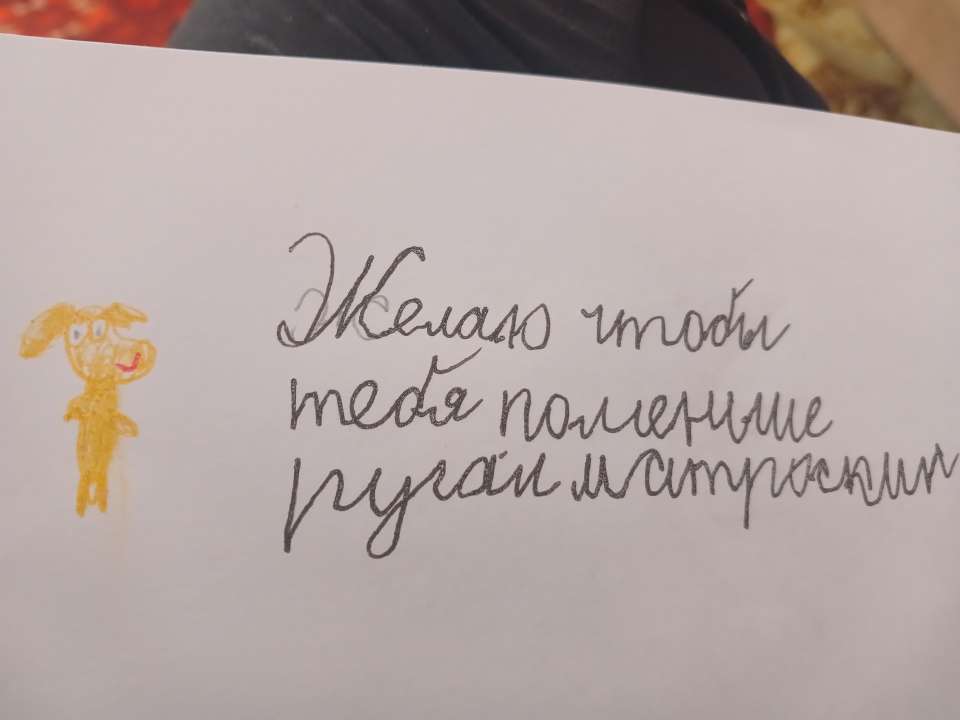 Желаю чтобы
тебя поменьше
ругал матроскин